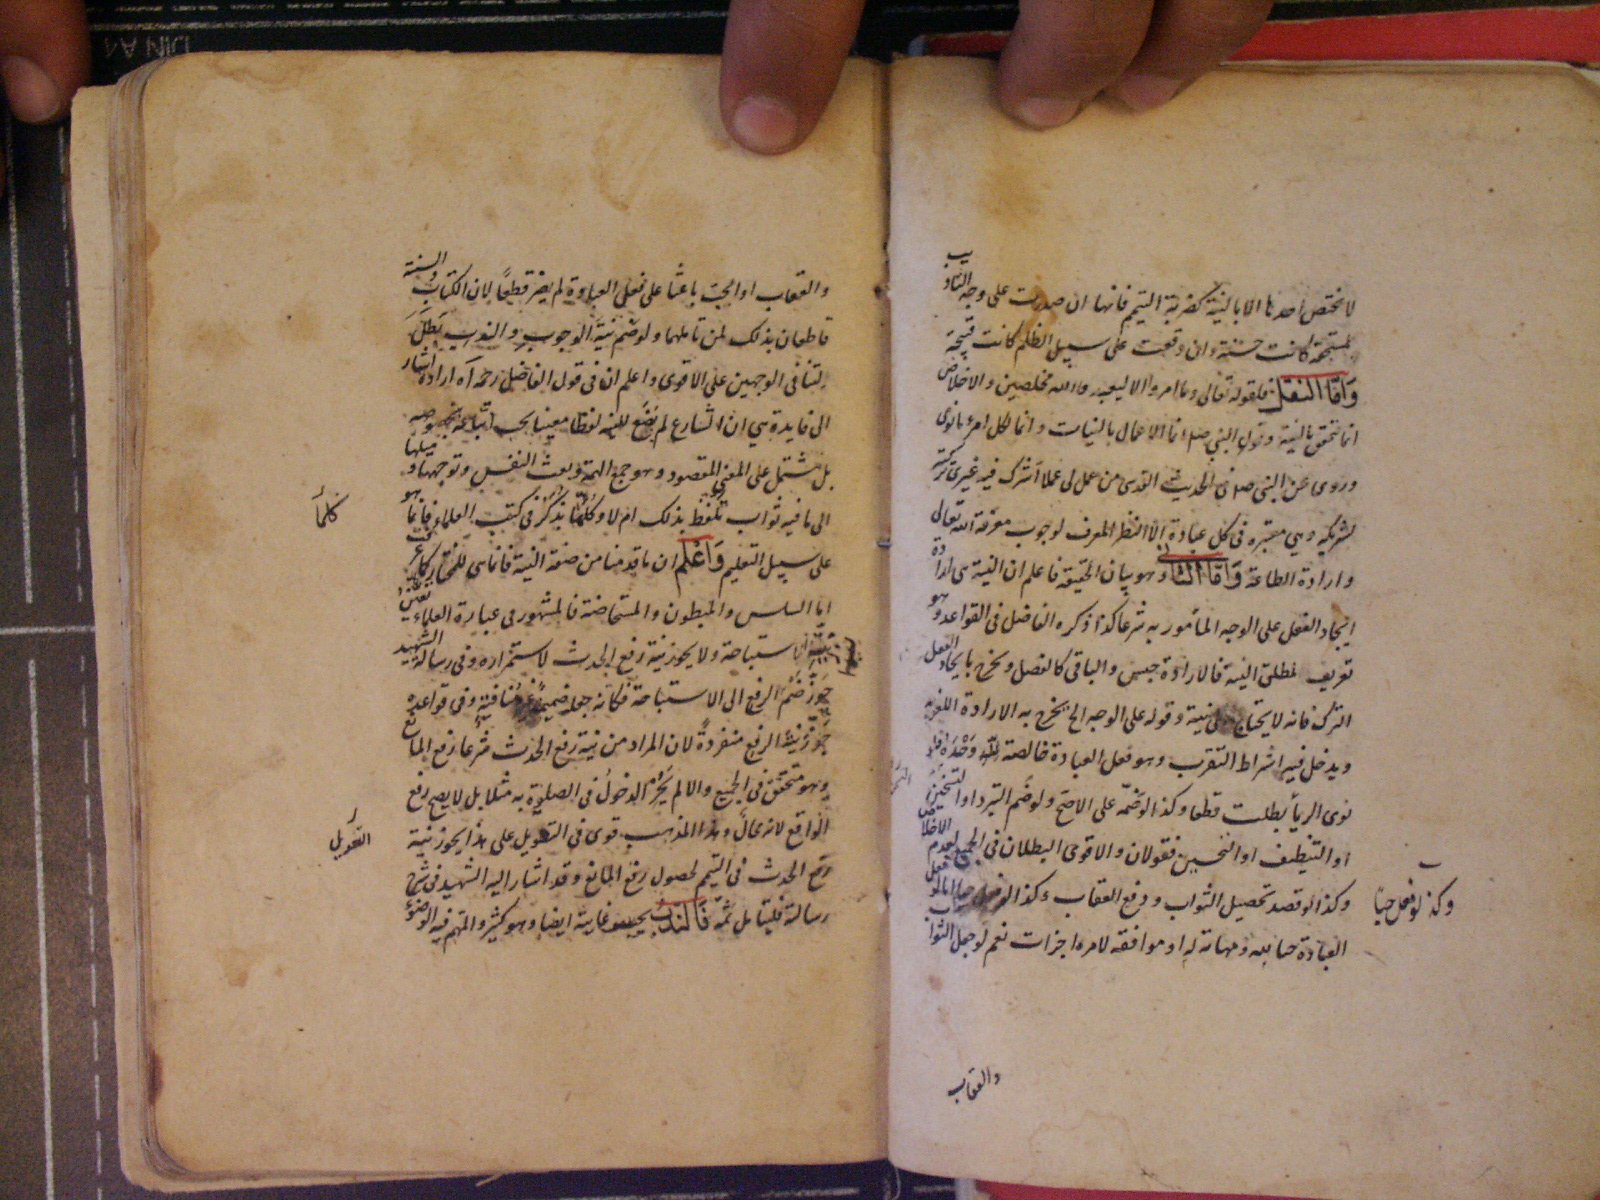 لا تختص احدها الا بالنية كضربة اليتيم فانها ان صدرت على وجه التاديب
المستحقة كانت حسنة وان وقعت على سبيل الظلم كانت قبيحة
وَامّا النقل فلقوله تعالى وما امروا الا ليعبدوا الله مخلصين والاخلاص
انما يتحقق بالنية وقول النبي صلى انما الاعمال بالنيات وانما لكل امرء ما نوى
وروى عن النبي ص في الحديث القدسى من عمل لى عملا اشرك فيه غيرى تركته
لشريكه وهي معتبرة فى كل عبادة الّا النظر المعرف لوجوب معرفة الله تعالى
وارادة الطاعة وَامّا الثانى وهو بيان الحقيقة فاعلم ان النية هى ارادة
ايجاد الفعل على الوجه المأمور به شرعا كذا ذكره الفاضل فى القواعد وهو
تعريف لمطلق النية فالارادة جنس والباقى كالفصل ويخرج بايجاد الفعل
الترك فانه لا يحتاج الى نية وقوله على الوجه الخ يخرج به الارادة اللغوية
ويدخل فيه اشراط التقرب وهو فعل العبادة خالصة لله وَحْدَه فلو
نوى الريأ بطلت قطعا وكذا لو ضمّه على الاصح ولو ضم التبرد او التسخين
او التنظيف او التحسين فقولان والاقوى البطلان فى الجميع لعدم الاخلاص
وكذا لو قصد تحصيل الثواب ودفع العقاب وكذا
العبادة حبا لله ومهابة له او موافقه لامره اجزات نعم لو جعل الثواب
وكذ لو فعل حيا
والعقاب
والعقاب او الحب باعثا على فعل العبادة لم يضر قطعًا لان الكتاب والسنة
قاطعان بذلك لمن تاملهما ولو ضم نية الوجوب والندب بَطَل
لتنافى الوجهين على الاقوى واعلم ان فى قول الفاضل رحمه ارادة اشار
الى فايدة هي ان الشارع لم يَضَع للنية لفظا معينا يجب اتباعه بخصوصه
بل تشتمل على المعنى المقصود وهو جمع الهمة وبعث النفس وتوجهها وميلها
الى ما فيه ثواب تلفظ بذلك ام لا وكلّما يذكر فى كتب العلماء فانما هو
على سبيل التعليم وَاعْلم ان ما قدمنا من صفة النية فانما هي للمختار
اما السلس والمبطون والمستحاضة فالمشهور فى عبارة العلماء
الاستباحة ولا يجوز نية رفع الحدث لاستمراره وفى رسالة الشهيد
جَوَّزَ ضَمّ الرفع الى الاستباحة فكانه جعله ضميمة غير مُنافية وفى قواعده
جَوَّزَ نية الرفع منفردةً لان المراد من نية رفع الحدث شرعا رفع المانع
وهو متحقق فى الجميع والا لم يَجُزْ الدخولُ فى الصلوة به مثلا بل لا يصح رفع
الواقع لانه محالٌ وهذا المذهب قوى فى التعويل على هذا يجوز نية
رفع الحدث فى التيمم لحصول رفع المانع وقد اشار اليه الشهيد فى شرح
رسالة فليتامل ثمّه فَالندب غاية ايضا وهو كثير والمهم فيه الوضوء
كلمأ
التعويل